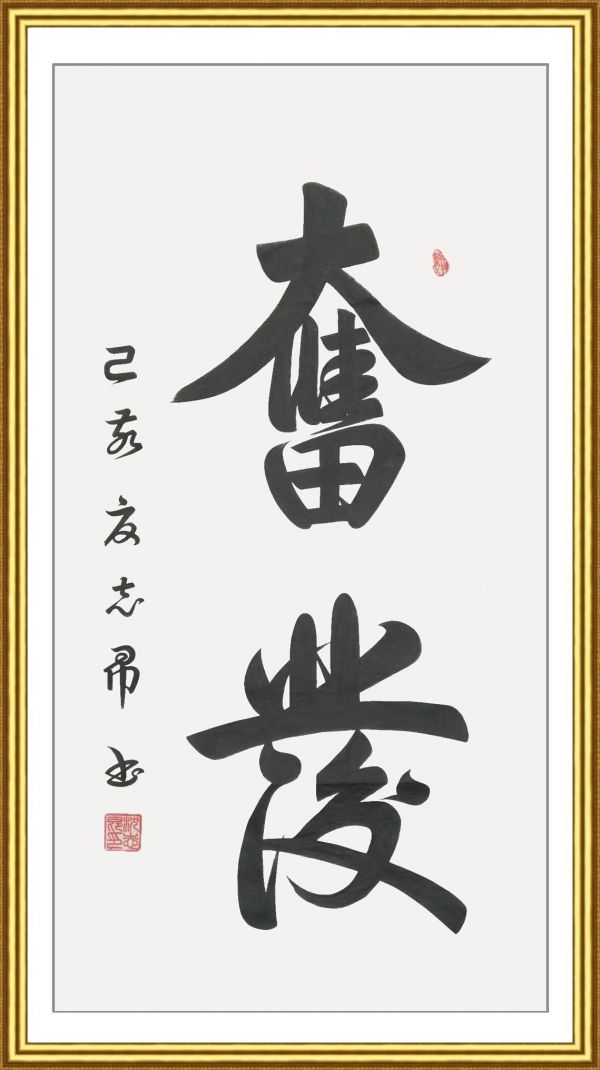 奮發
己亥夏志昂书